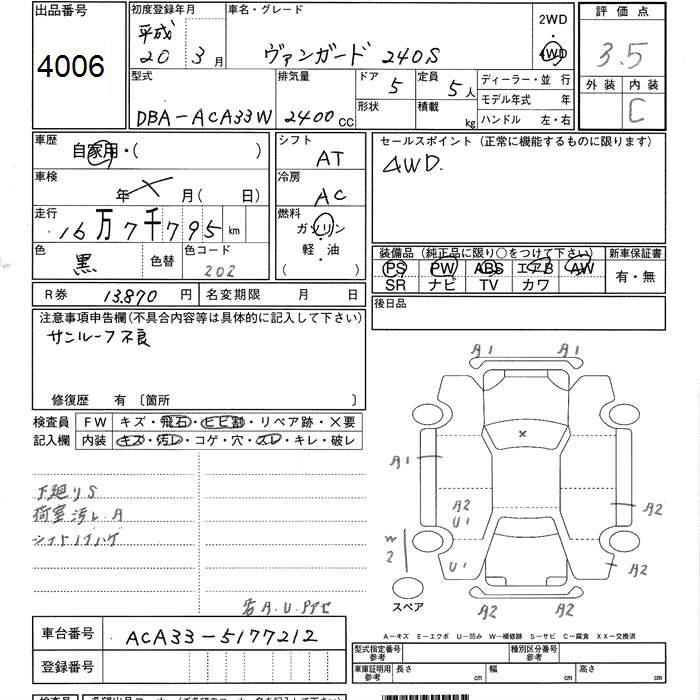 出品番号 初度登録年月 車名・グレード 2WD ・ 4WD 評価点
4006 平成 20 3月 ヴァンガード 240S 3.5
型式 排気量 ドア 5 定員 5人 ディーラー・並行 外装 内装
DBA-ACA33W 2400cc 形状 積載 kg モデル年式 年 C
ハンドル 左・右
車歴 自家用・( ) シフト AT セールスポイント (正常に機能するものに限ります)
車検 年 月( 日) 冷房 AC 4WD.
走行 16万7千795km 燃料 ガソリン・軽・油 ( )
色 黒 色替 色コード 202 装備品 (純正品に限り○をつけて下さい) 新車保証書
PS PW ABS エアB AW 有・無
SR ナビ TV カワ
R券 13,870円 名変期限 月 日 後日品
注意事項申告欄(不具合内容等は具体的に記入して下さい)
サンルーフ不良
修復歴 有〔箇所 〕
検査員 FW キズ・飛石・ヒビ割・リペア跡・×要
記入欄 内装 キズ・汚レ・コゲ・穴・スレ・キレ・破レ
A1 A1
A1
A2
U1
A2
W2
U1
A2
A2 A2
スペア
下廻りS
荷室汚レ.A
シフトノブハゲ
A-キズ E-エクボ U-凹み W-補修跡 S-サビ C-腐食 XX-交換済
車台番号 ACA33-5177212 型式指定番号 参考 種別区分番号 参考
登録番号 車庫証明用 参考 長さ cm 幅 cm 高さ cm